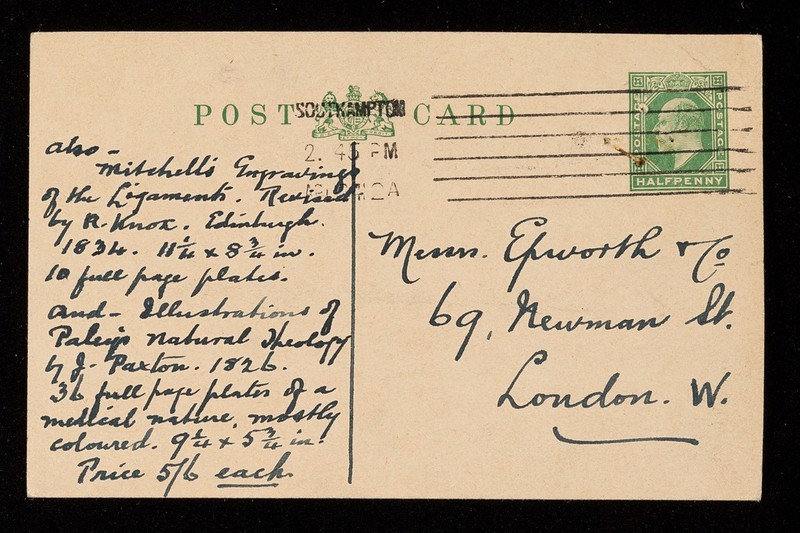 POST CARD
SOUTHAMPTON
2. 45 PM
POSTAGE
POSTAGE
HALFPENNY
also -
Mitchell's Engravings
of the Ligaments. Revised
by R. Knox. Edinburgh.
1834. 11 1/4 x 8 3/4 in.
10 full page plates.
and - Illustrations of
Paley's Natural Theology
by J. Paxton. 1826.
36 full page plates of a
medical nature, mostly
coloured. 9 1/4 x 5 3/4 in.
Price 5/6 each.
Messrs. Epworth & Co
69, Newman St.
London. W.